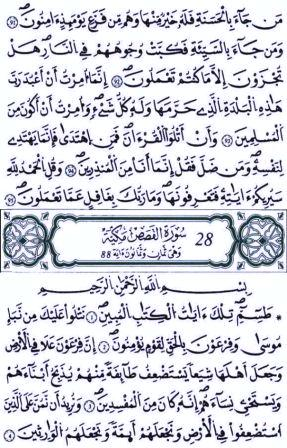 مَن جَآءَ بِالْحَسَنَةِ فَلَهُ خَيْرٌ مِّنْهَا وَهُم مِّن فَزَعِ يَوْمَئِذٍ ءَامِنُونَ 91
وَمَن جَآءَ بِالسَّيِّئَةِ فَكُبَّتْ وُجُوهُهُمْ فِي النَّارِ هَلْ
تُجْزَوْنَ إِلَّا مَا كُنتُمْ تَعْمَلُونَ 92 إِنَّمَآ أُمِرْتُ أَنْ أَعْبُدَ رَبَّ
هَٰذِهِ الْبَلْدَةِ الَّذِي حَرَّمَهَا وَلَهُ كُلُّ شَيْءٍ وَأُمِرْتُ أَنْ أَكُونَ مِنَ
الْمُسْلِمِينَ 93 وَأَنْ أَتْلُوَا الْقُرْءَانَ فَمَنِ اهْتَدَىٰ فَإِنَّمَا يَهْتَدِي
لِنَفْسِهِ وَمَن ضَلَّ فَقُلْ إِنَّمَآ أَنَا مِنَ الْمُنذِرِينَ 94 وَقُلِ الْحَمْدُ لِلَّهِ
سَيُرِيكُمْ ءَايَٰتِهِ فَتَعْرِفُونَهَا وَمَا رَبُّكَ بِغَٰفِلٍ عَمَّا تَعْمَلُونَ 95
28 سُورَةُ الْقَصَصِ مَكِّيَّة
وَهِيَ ثَمَان وَثَمَانُونَ ءَايَة 88
بِسْمِ اللَّهِ الرَّحْمَٰنِ الرَّحِيمِ
طَسِمِّ تِلْكَ ءَايَٰتُ الْكِتَٰبِ الْمُبِينِ 1 نَتْلُوا عَلَيْكَ مِن نَّبَإِ
مُوسَىٰ وَفِرْعَوْنَ بِالْحَقِّ لِقَوْمٍ يُؤْمِنُونَ 2 إِنَّ فِرْعَوْنَ عَلَا فِي الْأَرْضِ
وَجَعَلَ أَهْلَهَا شِيَعًا يَسْتَضْعِفُ طَآئِفَةً مِّنْهُمْ يُذَبِّحُ أَبْنَآءَهُمْ
وَيَسْتَحْيِي نِسَآءَهُمْ إِنَّهُ كَانَ مِنَ الْمُفْسِدِينَ 3 وَنُرِيدُ أَن نَّمُنَّ عَلَى الَّذِينَ
اسْتُضْعِفُوا فِي الْأَرْضِ وَنَجْعَلَهُمْ أَئِمَّةً وَنَجْعَلَهُمُ الْوَٰرِثِينَ 4